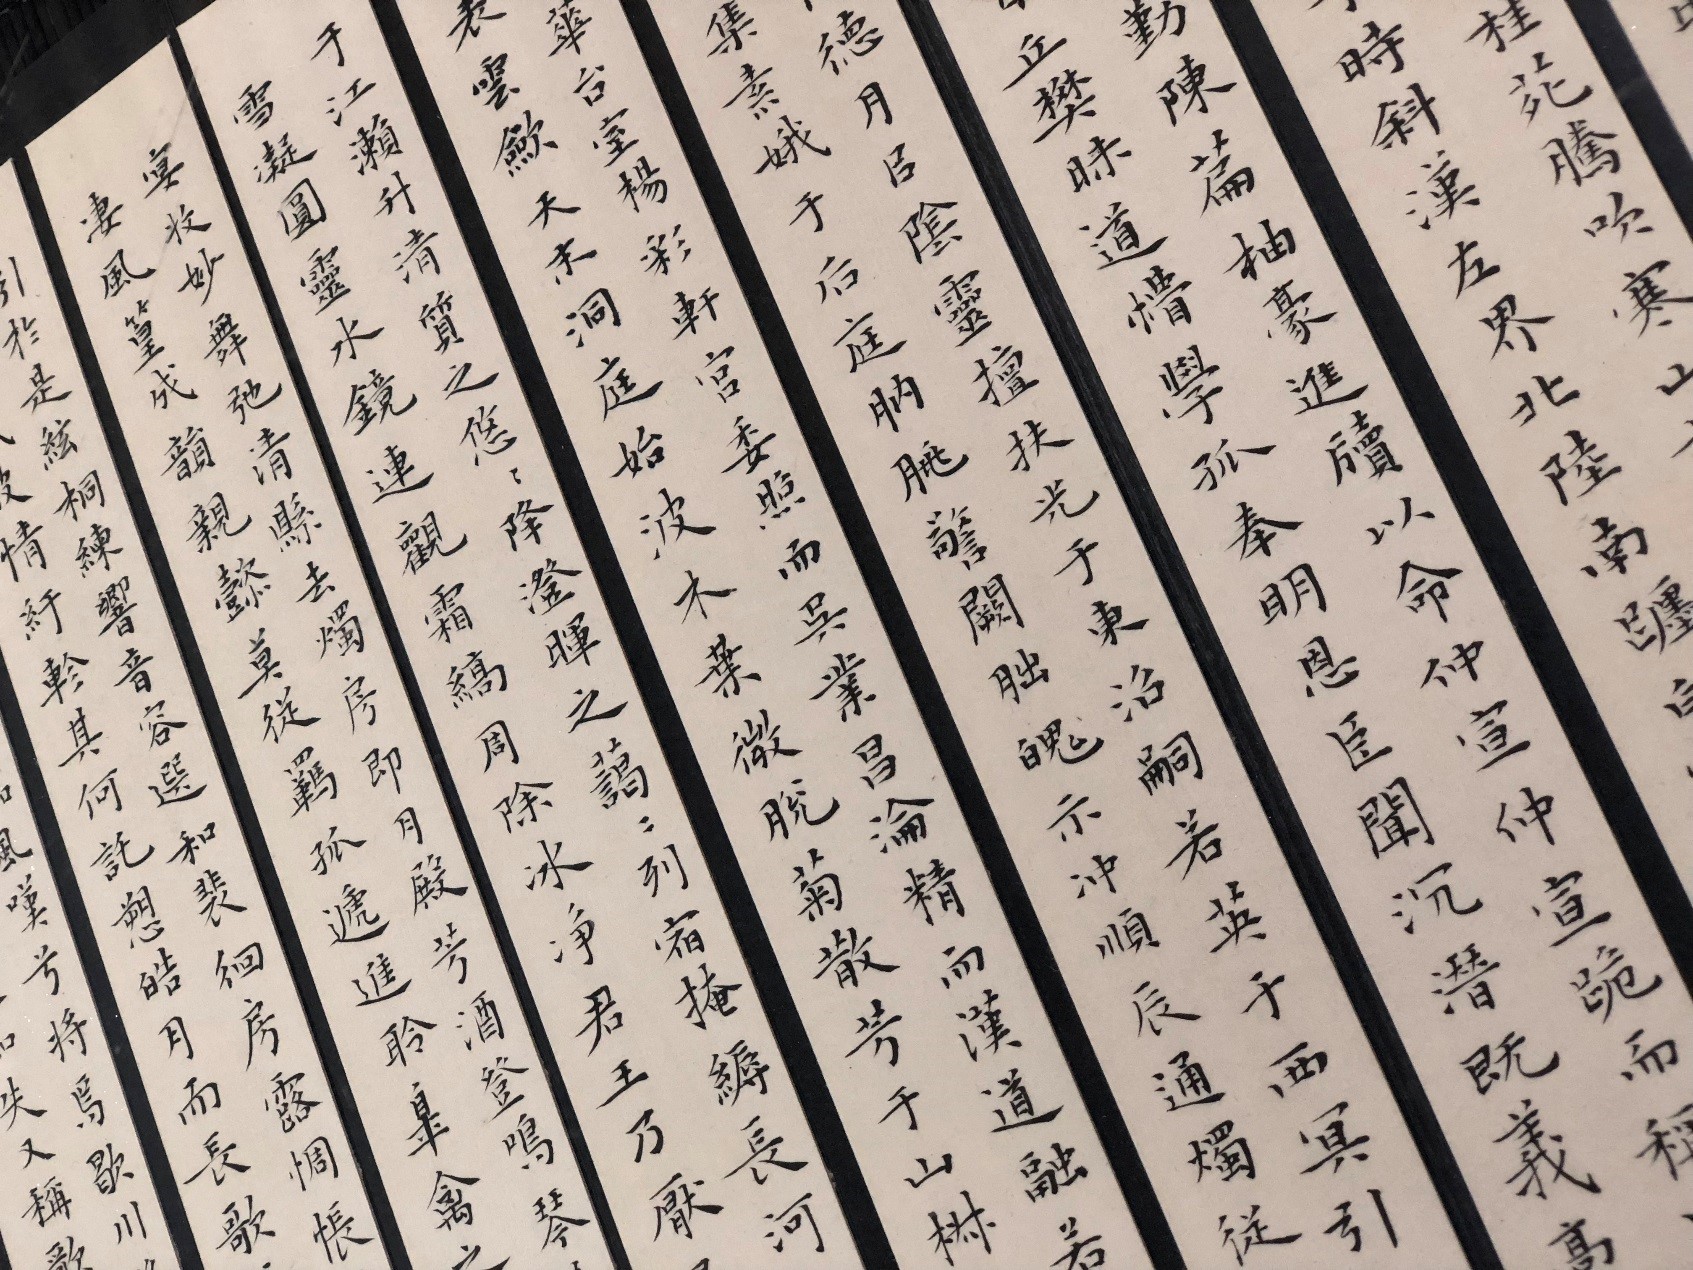 桂苑騰吹寒山
時斜漢左界北陸南躔
勤陳篇抽豪進牘以命仲宣仲宣跪而稱
丘樊昧道懵學孤奉明恩臣聞沉潛既義高
德月㠯陰靈擅扶光于東沼嗣若英于西冥引
集素娥于后庭朒脁警闕朏魄示沖順辰通燭從
華台室楊彩軒宮委照而吳業昌淪精而漢道融若
表雲歛天末洞庭始波木葉微脫菊散芳于山椒
于江瀨升清質之悠〻降澄暉之藹〻列宿掩縟長河
雪凝圓靈水鏡連觀霜縞周除冰淨君王乃厭
宴收妙舞弛清縣去燭房即月殿芳酒登鳴琴
淒風篁成韻親懿莫從羈孤遞進聆皋禽之
引於是絃桐練響音容選和裴徊房露惆悵
波情紆軫其何託愬皓月而長歌
風嘆兮將焉歇川
失又稱歌